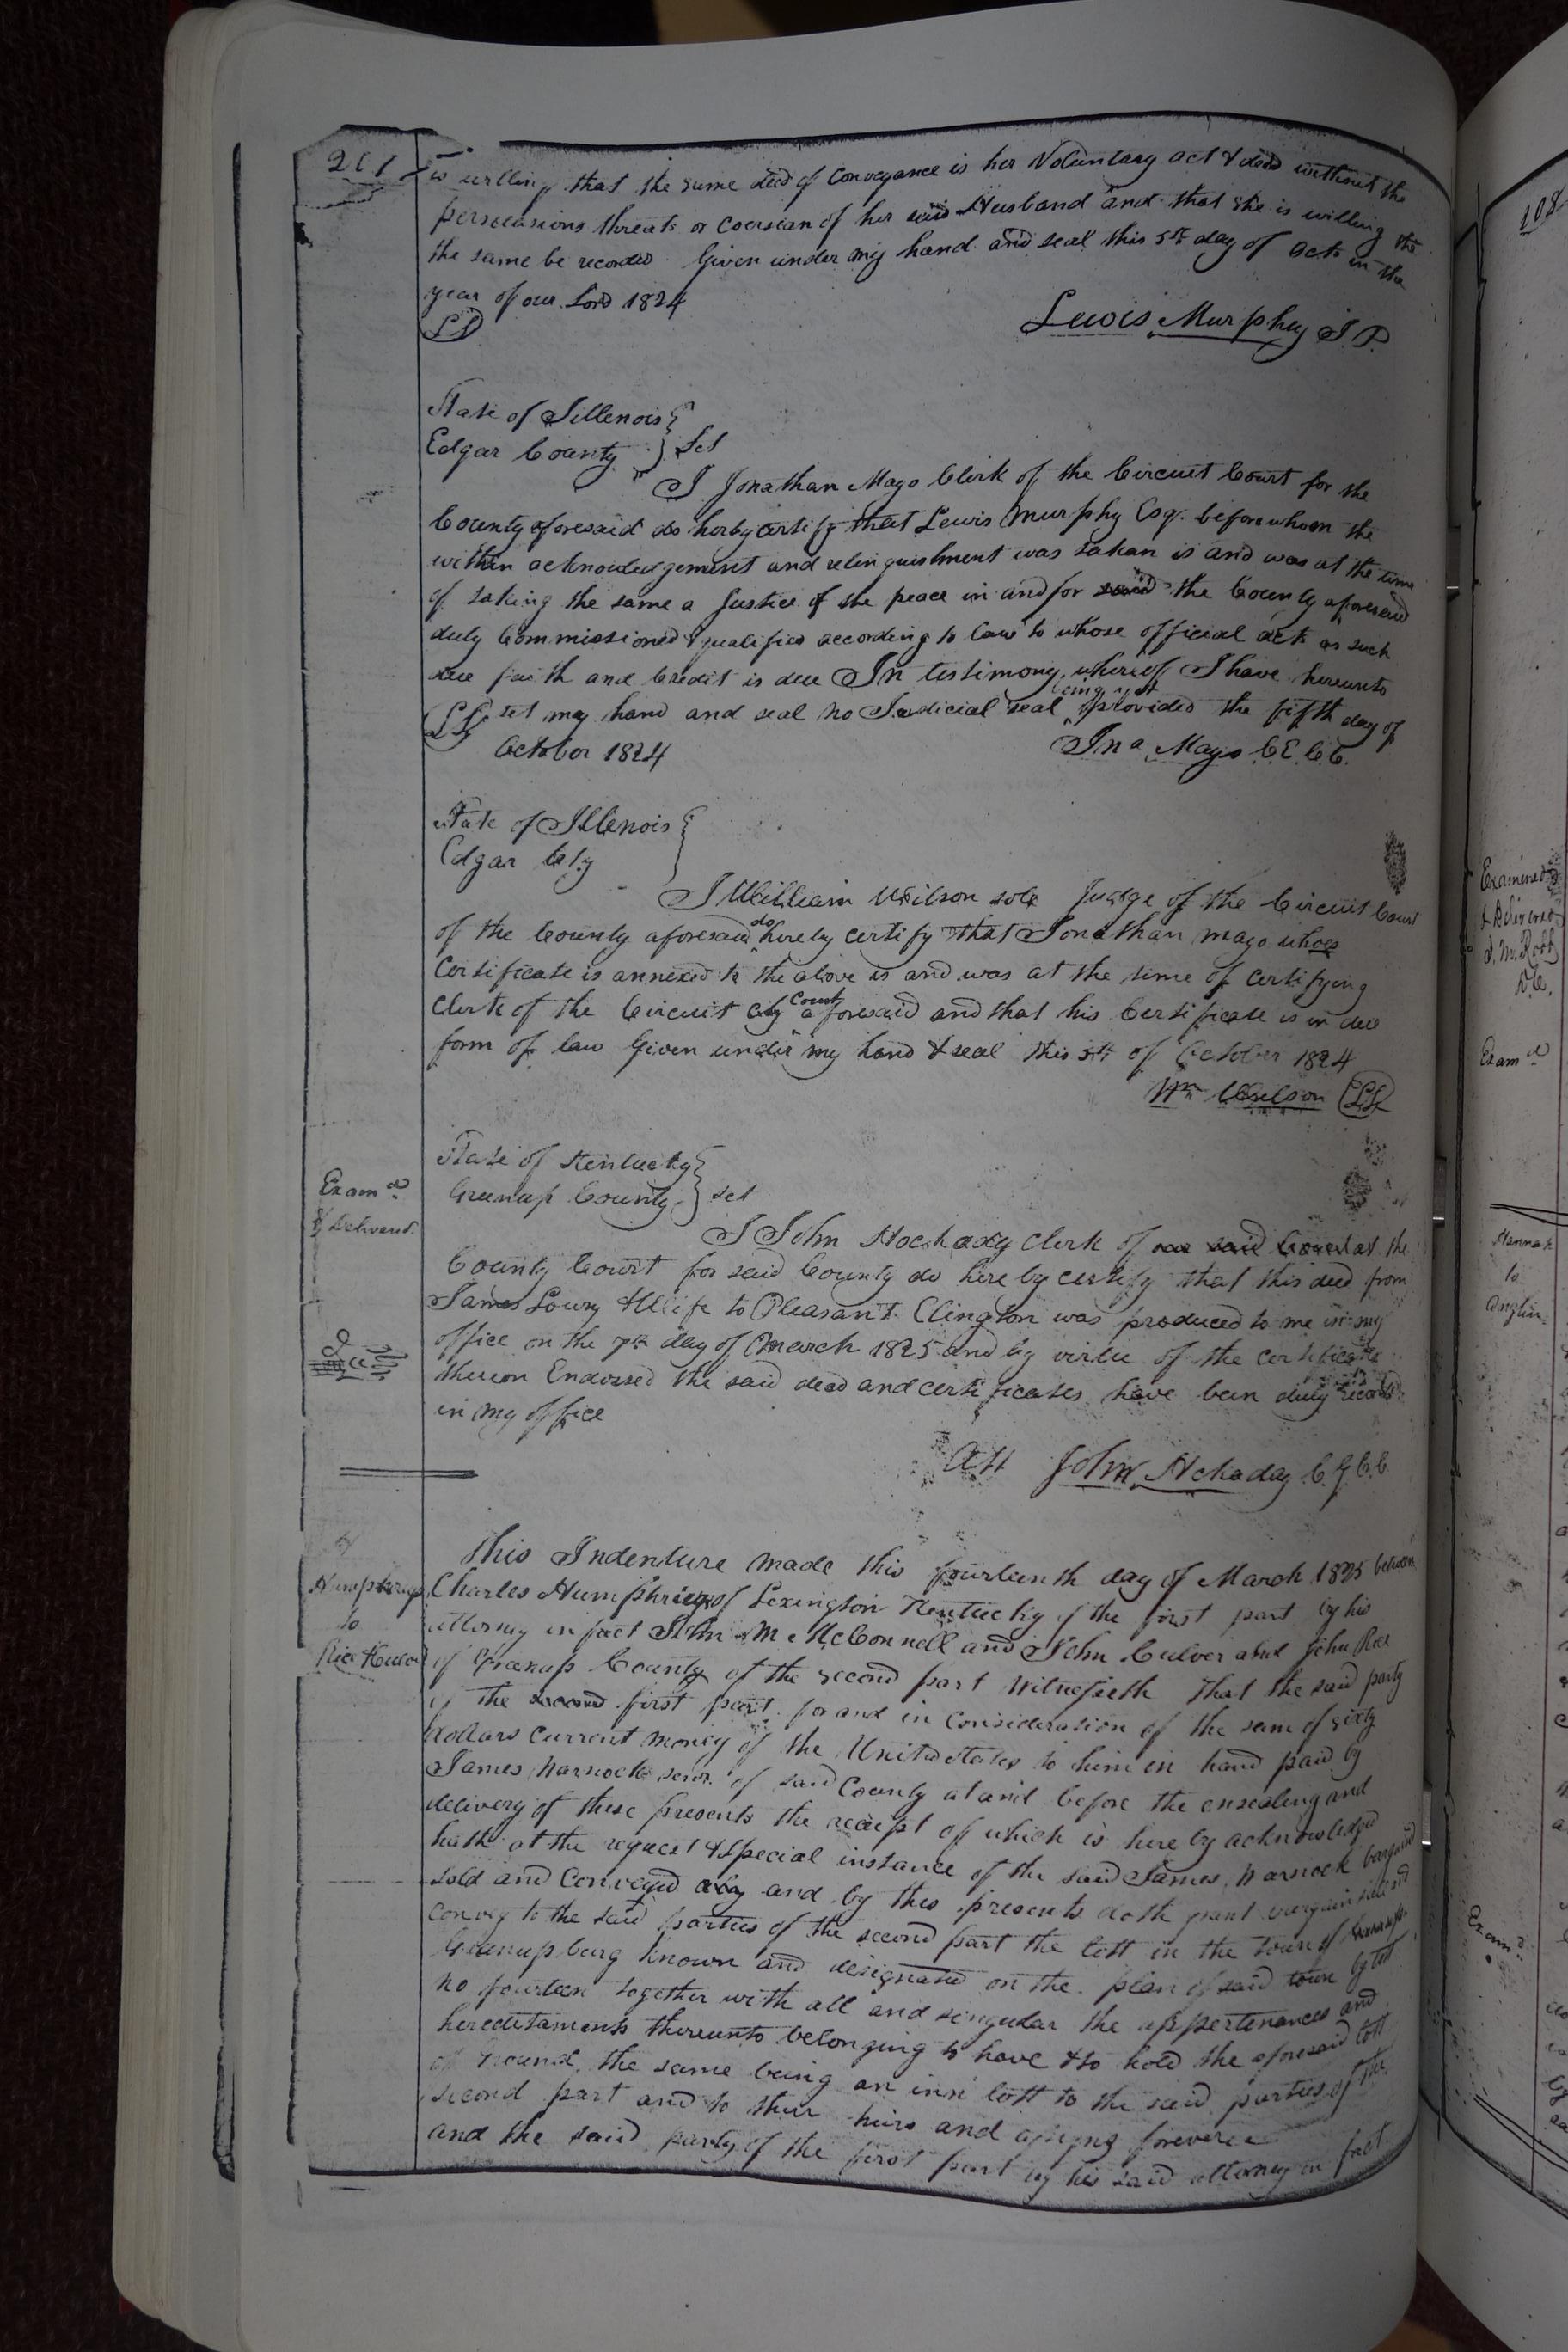 is willing that the same deed of Conveyance is her Voluntary act & deed without the
perscasions threats or Coersian of her said Husband and that she is willing the
the same be recorded Given under my hand and seal this 5th day of Octo in the
year of our Lord 1824
LS
Lewis Murphy J P.
State of Illenois
Edgar County } Sct
I Jonathan Mayo Clerk of the Circuit Court for the
County aforesaid do herby certify that Lewis Murphy Esqr. before whom the
within acknowledgement and relinquishment was taken is and was at the time
of taking the same a Justice of the peace in and for said the County aforesaid
duly Commissioned & qualified according to law to whose official acts as such
due faith and Credit is due In testimony whereof I have hereunto
LS set my hand and seal no Judicial seal being yet provided the fifth day of
October 1824
Jna Mayo C E C C.
State of Illenois
Edgar Cty
I William Wilson sole Judge of the Circuit Court
of the County aforesaid do hereby certify that Jonathan Mayo whoes
Certificate is annexed to the above is and was at the time of certifying
Clerk of the Circuit Cty Court aforesaid and that his Certificate is in due
form of law Given under my hand & seal this 5th of October 1824
Wm Wilson LS
Examd
& Delivered
State of Kentucky
Greenup County } sct
I John Hockaday Clerk of said Court at the
County Court for said County do hereby certify that this deed from
James Lowry & Wife to Pleasant Elington was produced to me in my
office on the 7th day of March 1825 and by virtue of the certificate
thereon Endorsed the said deed and certificates have been duly record
in my office
Att John Hckaday C G C C
Humphreys
to
Rice &
This Indenture made this fourteenth day of March 1825 between
Charles Humphrieys of Lexington Kentucky of the first part by his
attorney in fact John M McConnell and John Culver and John Rice
of Greenup County of the second part Witnesseth That the said party
of the second first part for and in Consideration of the sum of sixty
dollars Current money of the United States to him in hand paid by
James Warnock senr. of said County at and before the ensealing and
delivery of these presents the receipt of which is here by acknowledged
hath at the request & special instance of the said James Warnock bargained
sold and Conveyed and by thes presents doth grant bargain sell and
convey to the said parties of the second part the lott in the town of
Greenup being known and designated on the plan of said town by lot
no fourteen together with all and singular the appertenances and
hereditaments thereunto belonging to have & to hold the aforesaid lott
of Ground, the same being an inn lott to the said parties of the
second part and to their heirs and assigns forever
and the said party of the first part by his said attorney in fact
108
Examined
& Delivered
Examd
to
Examd